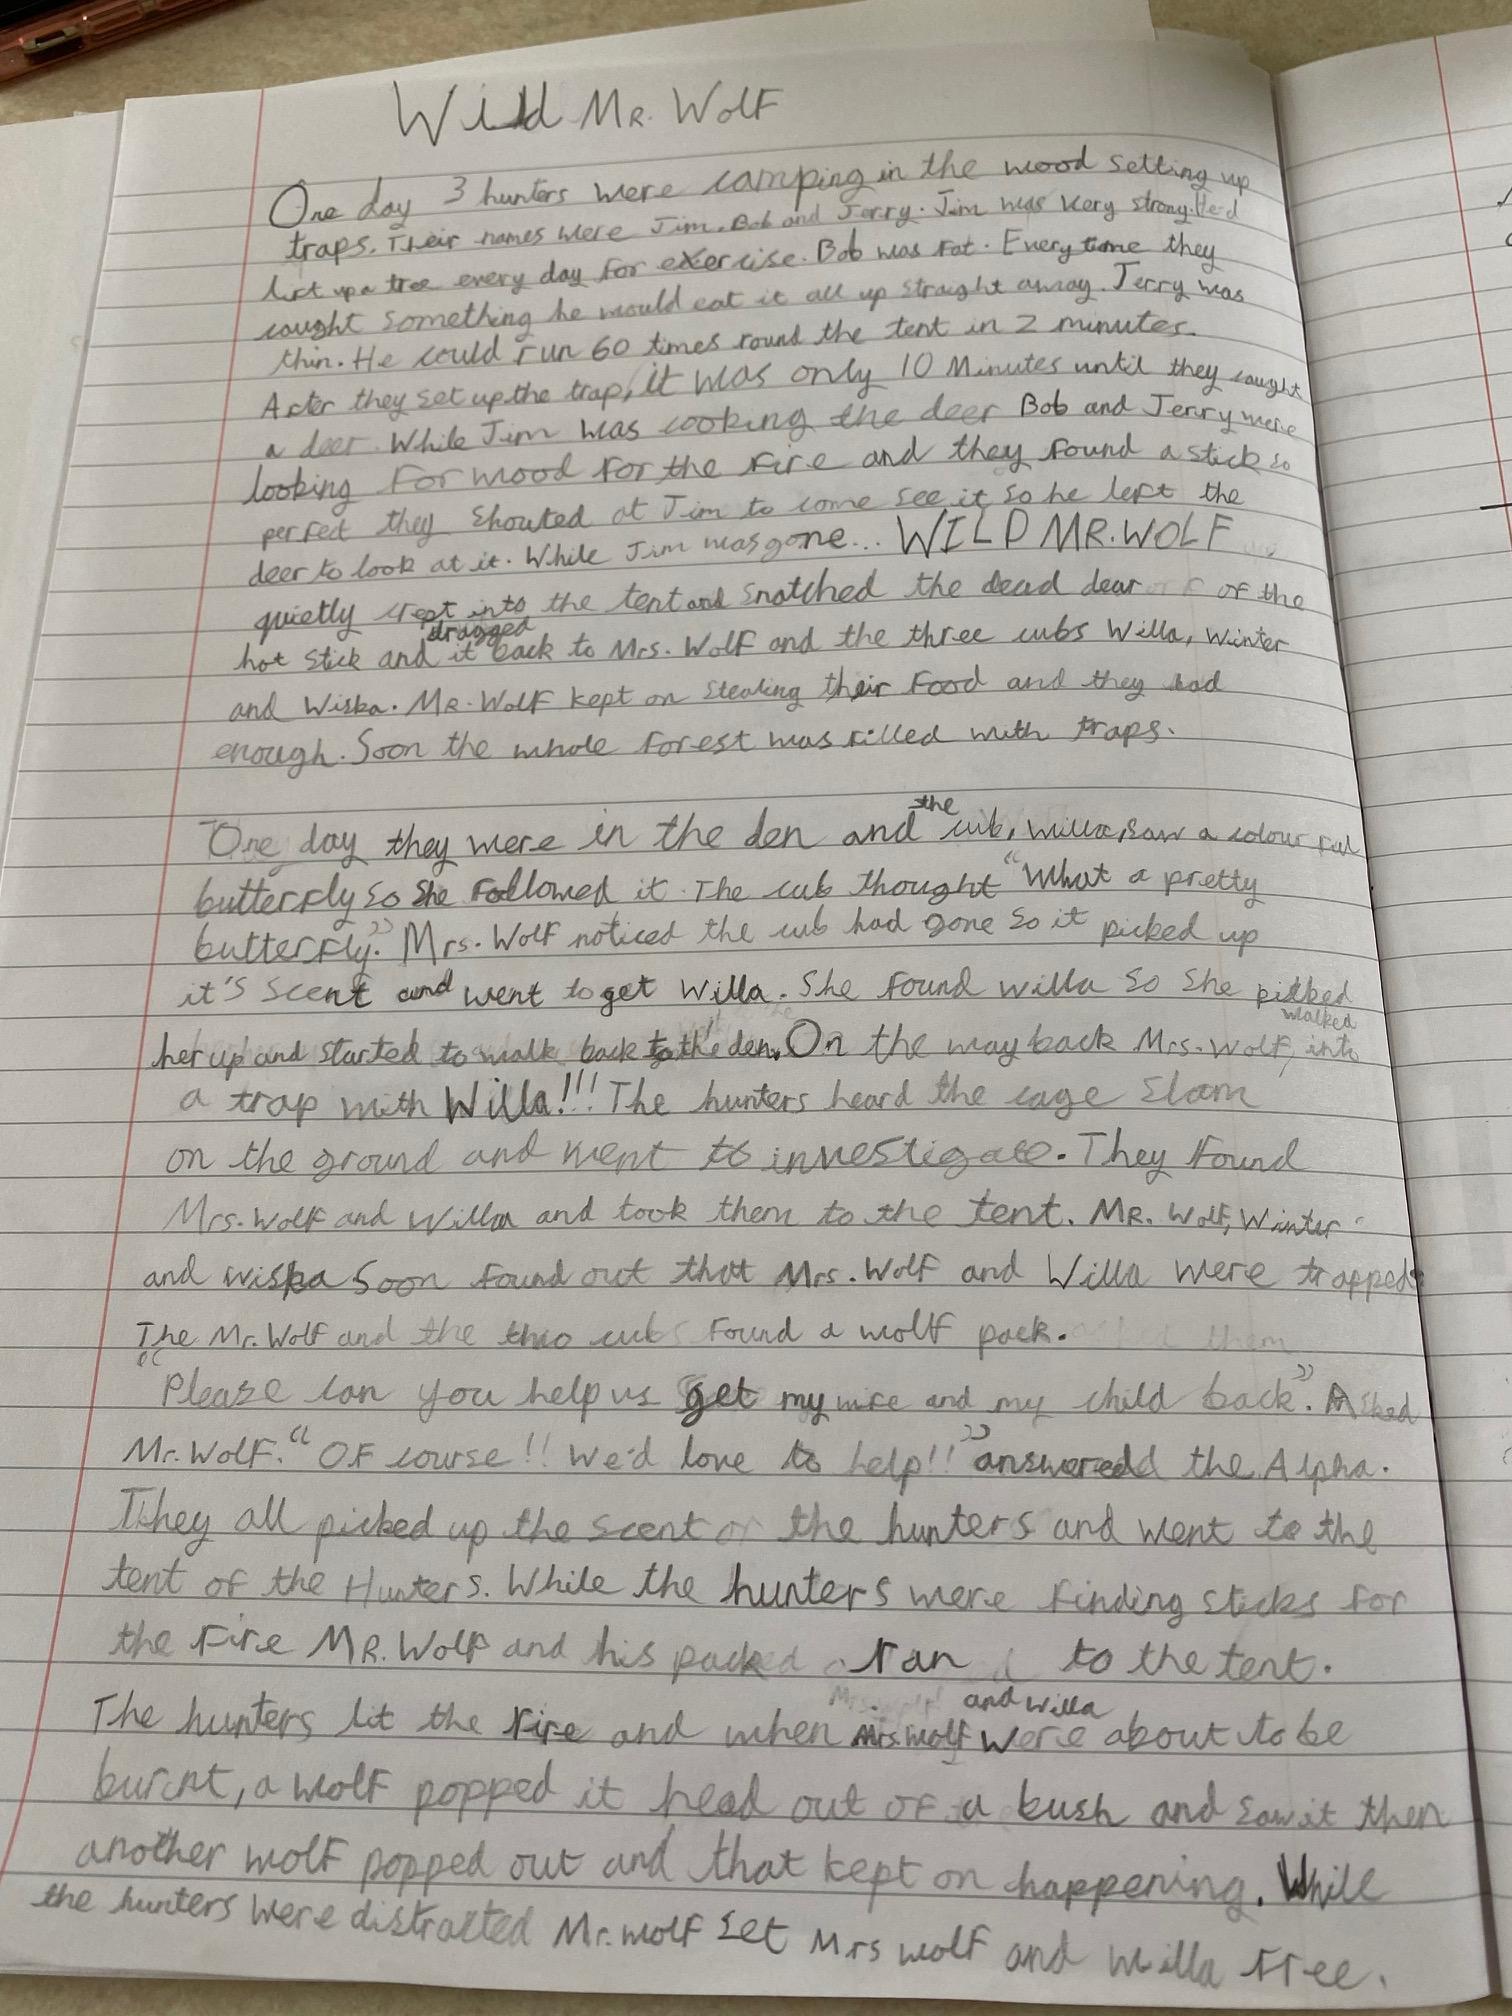 Wild Mr. Wolf
One day 3 hunters were camping in the wood setting up
traps. Their names were Jim, Bob and Jerry. Jim was very strong. He'd
lift up a tree every day for exercise. Bob was fat. Every time they
caught something he would eat it all up straight away. Jerry was
thin. He could run 60 times round the tent in 2 minutes.
After they set up the trap, it was only 10 Minutes until they caught
a deer. While Jim was cooking the deer Bob and Jerry were
looking for wood for the fire and they found a stick so
perfect they shouted at Jim to come see it so he left the
deer to look at it. While Jim was gone... WILD MR. WOLF
quietly crept into the tent and snatched the dead dear of the
hot stick and dragged it back to Mrs. Wolf and the three cubs Willa, Winter
and Wiska. MR. Wolf kept on stealing their food and they had
enough. Soon the whole forest was filled with traps.
One day they were in the den and the cub, Willa, saw a colour ful
butterfly so she followed it. The cub thought "What a pretty
butterfly." Mrs. Wolf noticed the cub had gone so it picked up
it's scent and went to get Willa. She found willa so she picked
her up and started to walk back to the den. On the way back Mrs. Wolf, walked into
a trap with Willa!!! The hunters heard the cage slam
on the ground and went to investigate. They found
Mrs. Wolf and Willa and took them to the tent. MR. Wolf, Winter
and wiska soon found out that Mrs. Wolf and Willa were trapped.
The Mr. Wolf and the two cubs found a wolf pack.
"Please can you help us get my wife and my child back". Asked
Mr. Wolf. "Of course!! We'd love to help!!" answered the Alpha.
They all picked up the scent of the hunters and went to the
tent of the Hunters. While the hunters were finding sticks for
the fire MR. Wolf and his pack ran to the tent.
The hunters lit the fire and when Mrs. Wolf and Willa were about to be
burnt, a wolf popped it head out of a bush and saw it then
another wolf popped out and that kept on happening. While
the hunters were distracted Mr. wolf set Mrs wolf and Willa free.